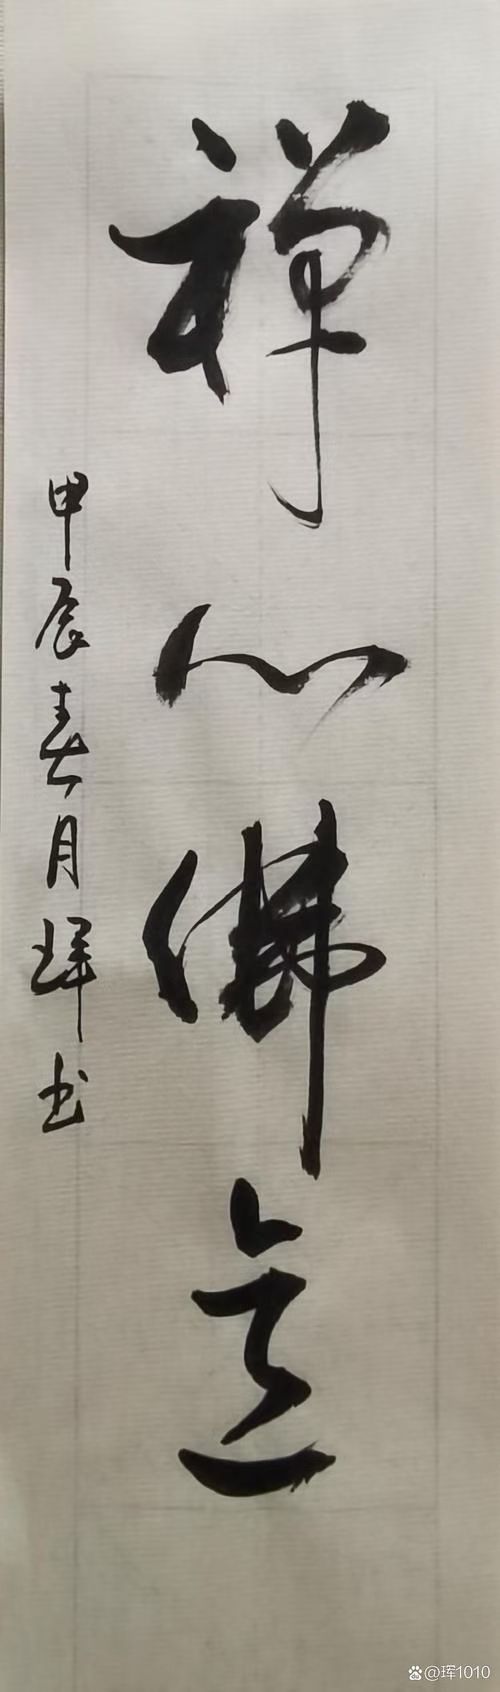 禅心佛意
甲辰春月珲书
@珲1010